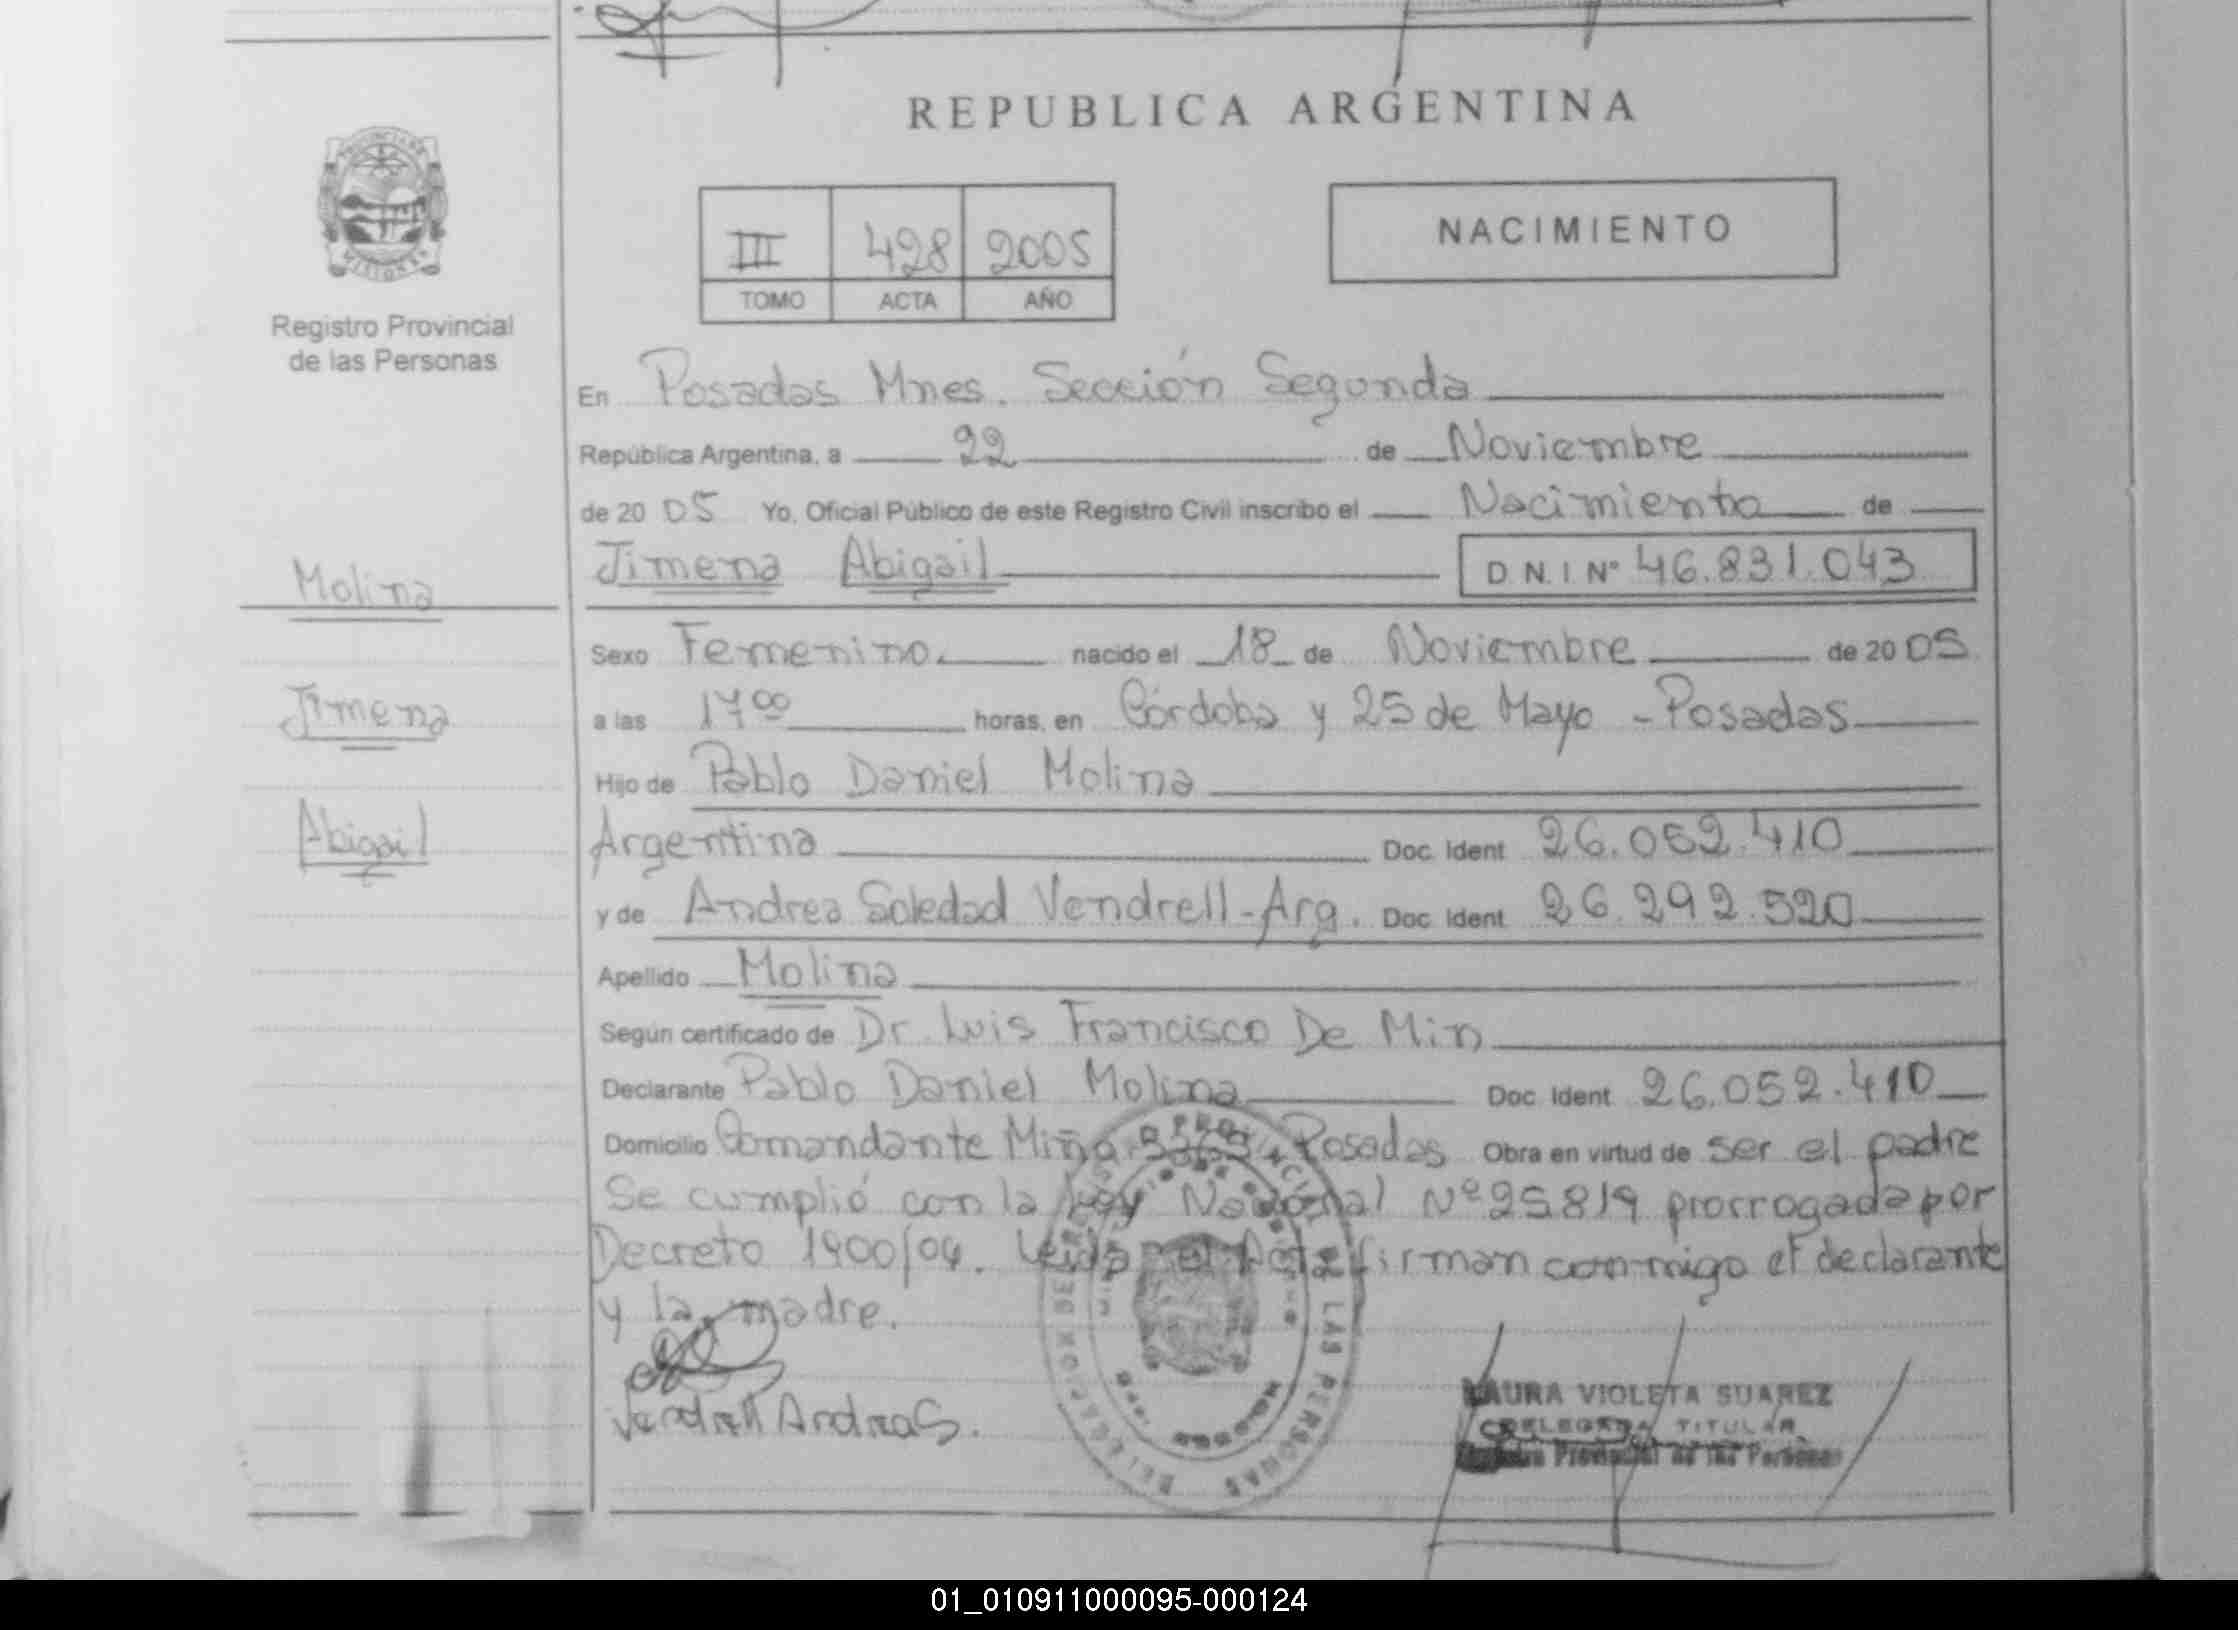 REPUBLICA ARGENTINA
PROVINCIA DE
MISIONES
Registro Provincial
de las Personas
III 428 2005
TOMO ACTA AÑO
NACIMIENTO
En Posadas Mnes. Sección Segunda
República Argentina, a 22 de Noviembre
de 20 05 Yo, Oficial Público de este Registro Civil inscribo el Nacimiento de
Jimena Abigail D N. I Nº 46.831.043
Molina
Jimena
Abigail
Sexo Femenino. nacido el 18 de Noviembre de 20 05
a las 17 00 horas, en Córdoba y 25 de Mayo - Posadas
Hijo de Pablo Daniel Molina
Argentina Doc. Ident 26.052.410
y de Andrea Soledad Vendrell - Arg. Doc. Ident 26.292.520
Apellido Molina
Según certificado de Dr. Luis Francisco De Min
Declarante Pablo Daniel Molina Doc. Ident 26.052.410
Domicilio Comandante Miño Posadas Obra en virtud de ser el padre
Se cumplió con la Ley Nacional Nº 25819 prorrogada por
Decreto 1900/04. Leída el Acta firman conmigo el declarante
y la madre.
Vendrell Andrea S.
LAURA VIOLETA SUAREZ
DELEGADA TITULAR
Registro Provincial de las Personas
DE LAS PERSONAS
01_010911000095-000124